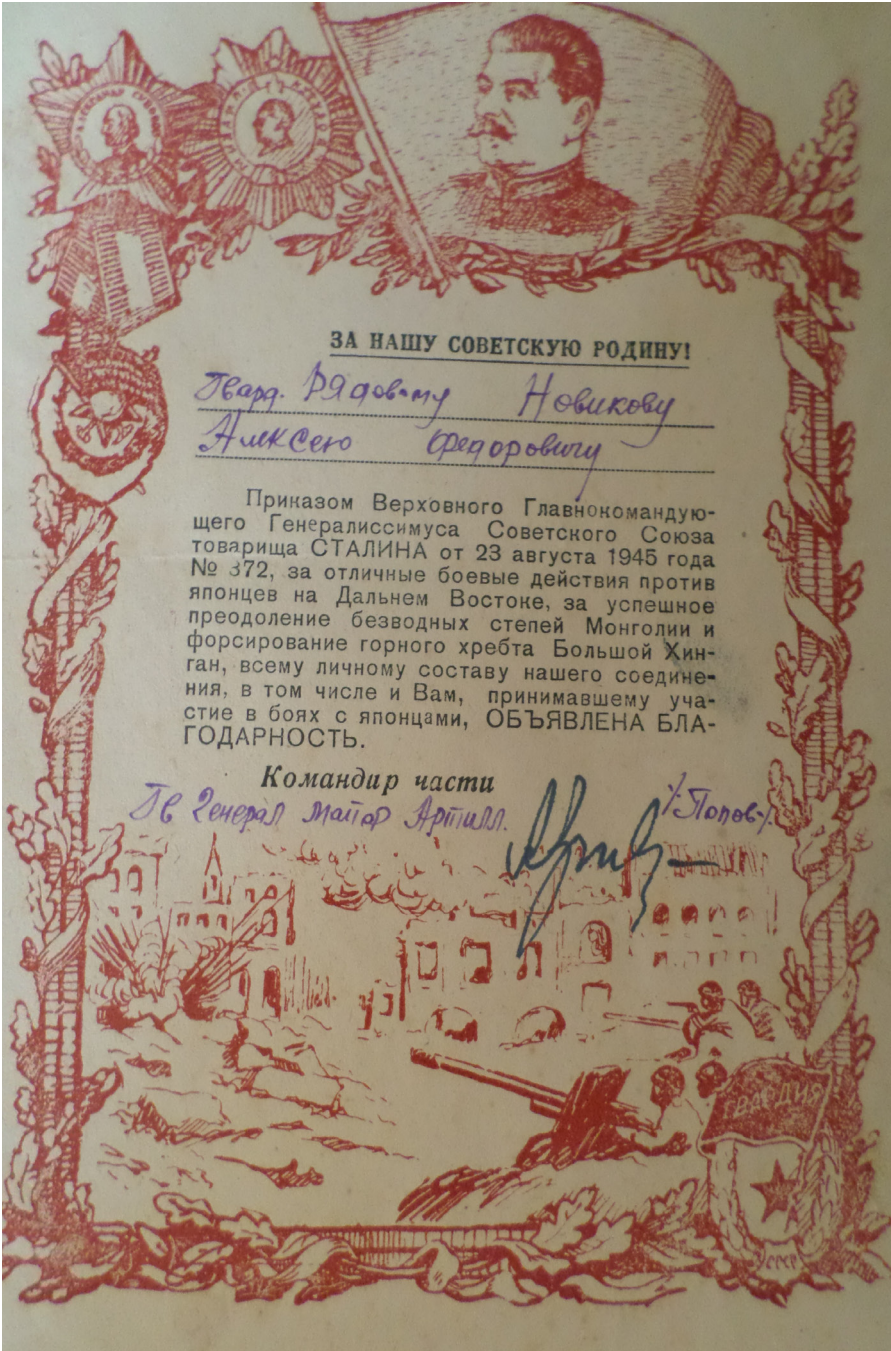 АЛЕКСАНДР СУВОРОВ
ЗА НАШУ СОВЕТСКУЮ РОДИНУ!
Гвард. Рядовому Новикову
Алексею Федоровичу
Приказом Верховного Главнокомандую-
щего Генералиссимуса Советского Союза
товарища СТАЛИНА от 23 августа 1945 года
№ 372, за отличные боевые действия против
японцев на Дальнем Востоке, за успешное
преодоление безводных степей Монголии и
форсирование горного хребта Большой Хин-
ган, всему личному составу нашего соедине-
ния, в том числе и Вам, принимавшему уча-
стие в боях с японцами, ОБЪЯВЛЕНА БЛА-
ГОДАРНОСТЬ.
Командир части
Гв Генерал майор Артилл. /-Попов-/
ГВАРДИЯ
СССР